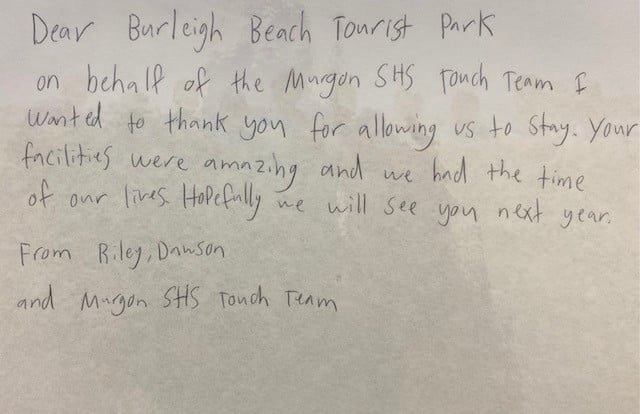 Dear Burleigh Beach Tourist Park
on behalf of the Murgon SHS Touch Team I
wanted to thank you for allowing us to stay. Your
facilities were amazing and we had the time
of our lives. Hopefully we will see you next year.
From Riley, Dawson
and Murgon SHS Touch Team